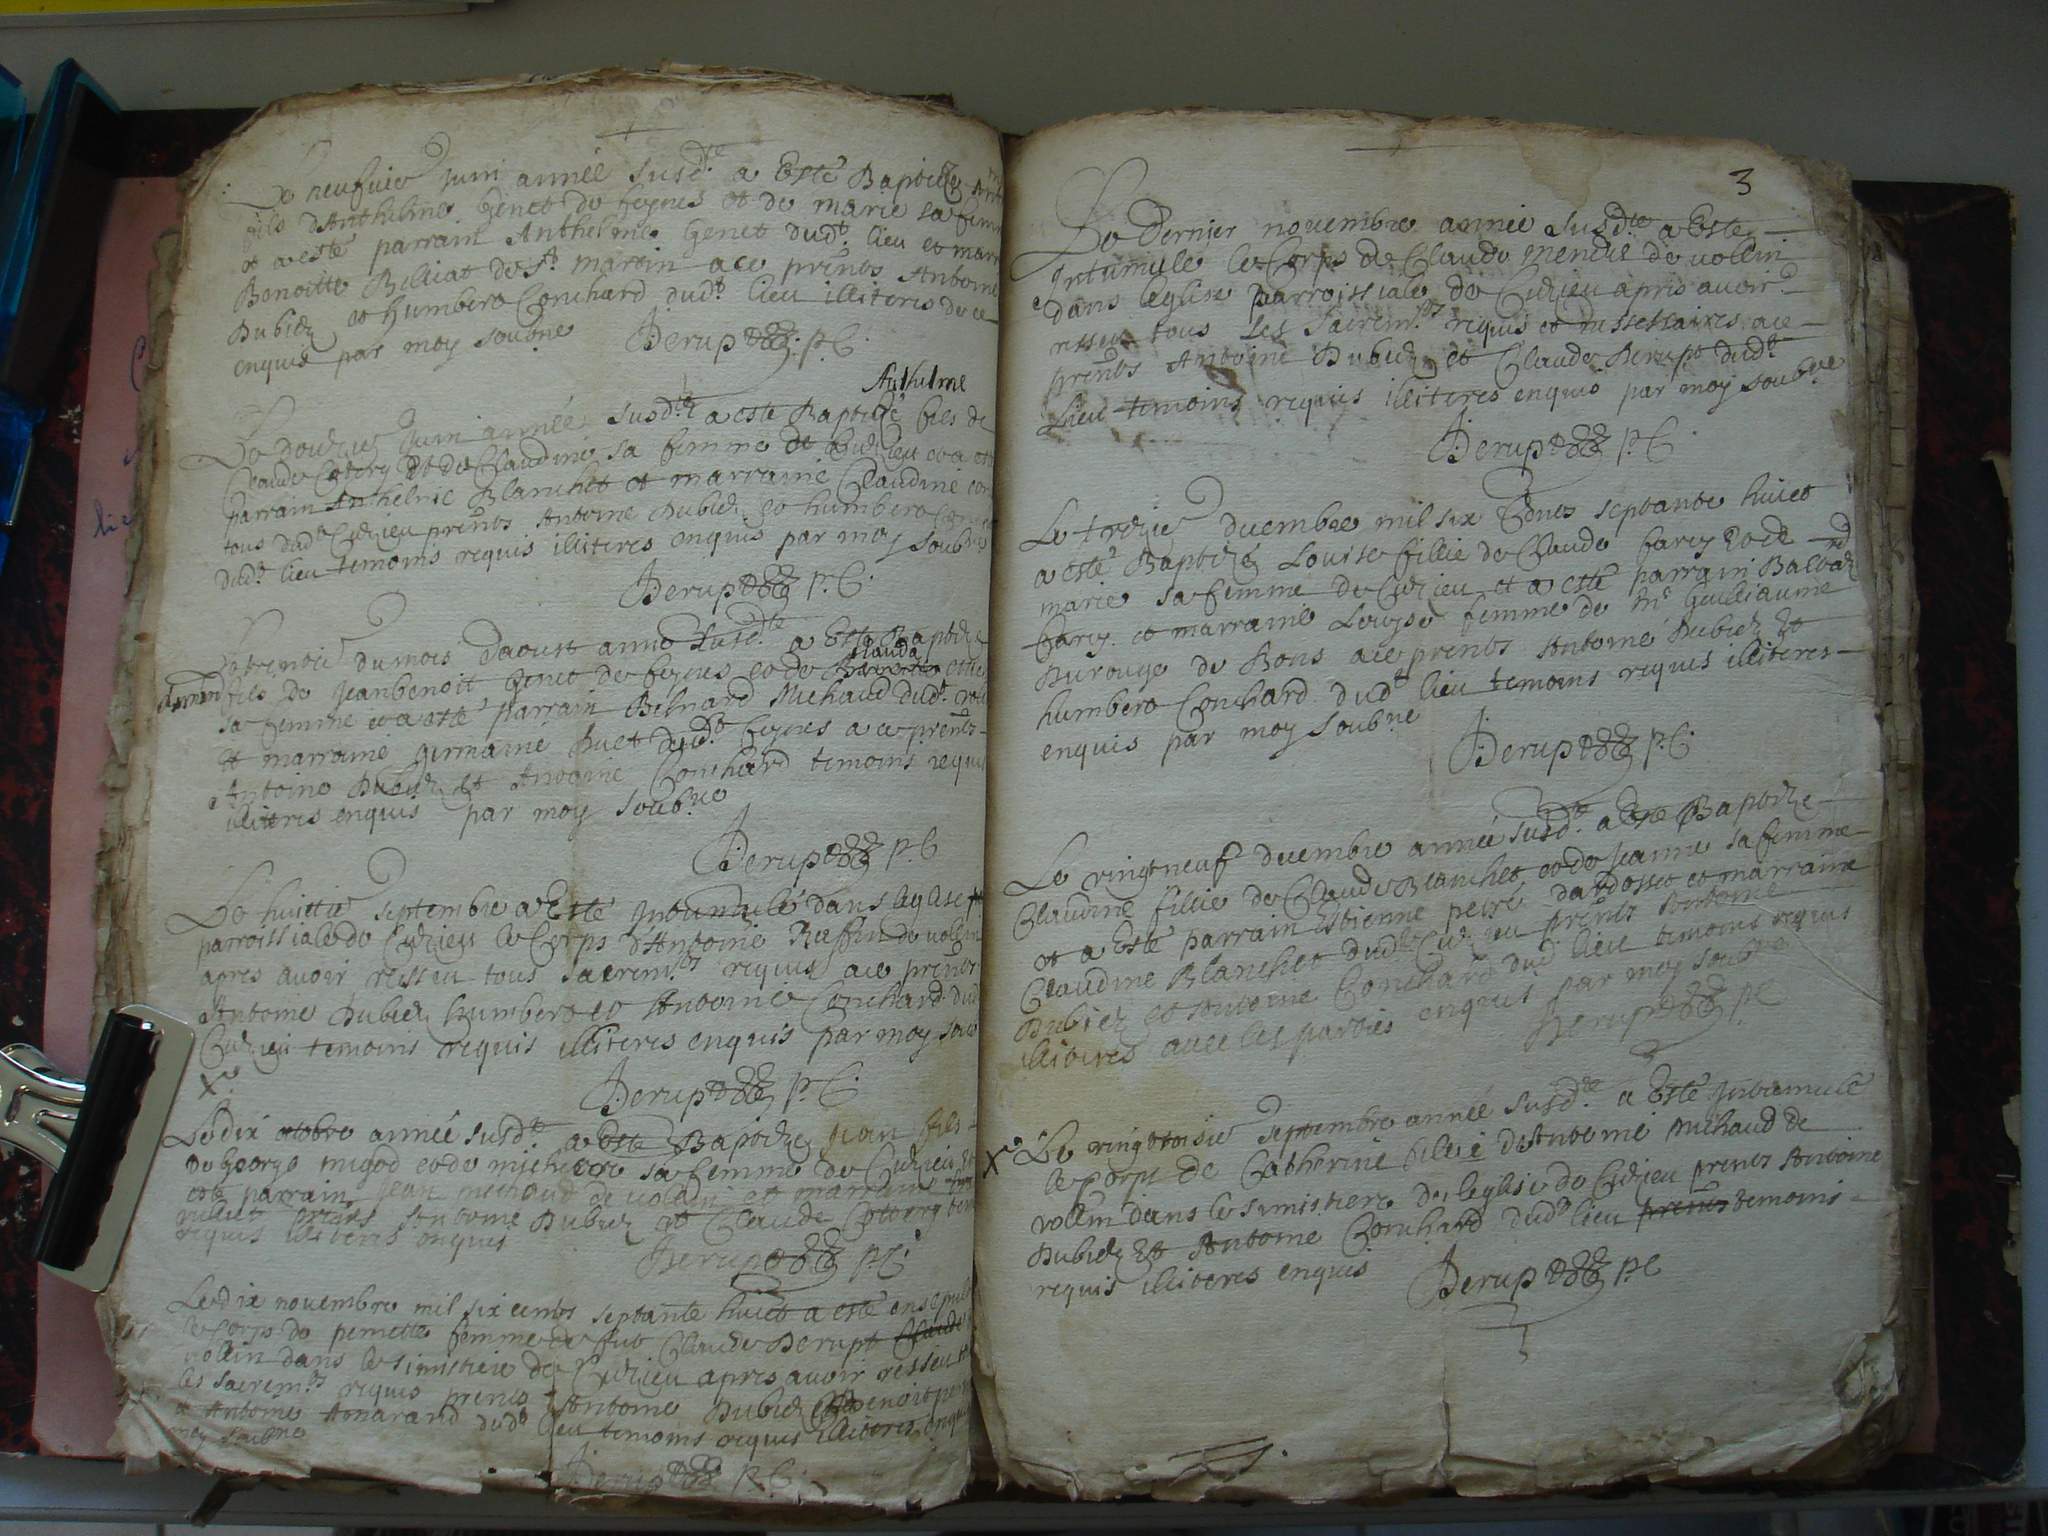 Le neufvie Juin année susdte a este Baptizé
fils d'Anthelme Genet de feyres et de marie sa femme
et a esté parrain Anthelme Genet dudt lieu et marr
Benoitte Billiat de St martin a ce prnts Antoine
Dubiez et humbert Conchard dudt lieu illiteres de ce
enquis par moy soubne
Derupt p.C.
Anthelme
Le douzie Juin année susdte a este Baptizé fils de
Claude Cottery et de Claudine sa femme de Cuzieu et a esté
parrain Anthelme Blanchet et marraine Claudine
tous dudt Cuzieu prnts Antoine Dubiez et humbert
dudt lieu temoins requis illiteres enquis par moy soubne
Derupt p.C.
du mois d'aoust année susdte a este Baptizé
fils de Jeanbenoit Genet de feyres et de Clauda
sa femme et a esté parrain Bernard Michaud dudt
et marraine germaine Buet dudt feyres a ce prnts
Antoine Dubiez et Antoine Conchard temoins requis
illiteres enquis par moy soubne
Derupt p.C
Le huittie septembre a Esté Intumulé dans leglise
parroissiale de Cuzieu le Corps d'Antoine Ruffin de vollin
apres avoir resseu tous sacremts requis a ce prnts
Antoine Dubiez humbert et Antoine Conchard dudt
Cuzieu temoins requis illiteres enquis par moy soub
X
Derupt p.C.
Le dix octobre année susdte a Este Baptizé Jean fils
de George migod et de sa femme de Cuzieu et
esté parrain Jean michaud de volein et marraine
prnts Antoine Dubiez et Claude Cottery
requis illiteres enquis
Derupt p.C.
Le dix novembre mil six cents septante huict a esté ensepul
le corps de pernette femme de fut Claude Derupt
vollin dans le simistiere de Cuzieu apres avoir resseu
les sacremts requis prnts Antoine Dubiez
et Antoine dudt lieu temoins requis illiteres enquis
moy soubne
Derupt p.C.
3
Le Dernier novembre année susdte a Este
Intumulé le Corps de Claude mendre de vollin
dans leglise parroissiale de Cuzieu apres avoir
resseu tous les sacremts requis et nessessaires a ce
prnts Antoine Dubiez et Claude Derupt dudt
Lieu temoins requis illiteres enquis par moy soubne
Derupt p.C.
Le trezie decembre mil six Cents septante huict
a esté Baptizé Louise fillie de Claude farcy et de
marie sa femme de Cuzieu et a esté parrain
farcy et marraine Louyse femme de Mr Guilliaume
Durouge de Bons a ce prnts Antoine Dubiez et
humbert Conchard dudt lieu temoins requis illiteres
enquis par moy soubne
Derupt p.C.
Le vingtneuf decembre année susdte a Esté Baptizé
Claudine fillie de Claude Blanchet et de Jeanne sa femme
et a Esté parrain Estienne petré d'ardosset et marraine
Claudine Blanchet dudt Cuzieu prnts Antoine
Dubiez et Antoine Conchard dudt lieu temoins requis
illiteres avec les parties enquis par moy soubne
Derupt p.C
X Le vingttroisie septembre année susdte a Esté Intumulé
le corps de Catherine fillie d'Antoine michaud de
vollin dans le simistiere de leglise de Cuzieu prnts Antoine
Dubiez et Antoine Conchard dudt lieu prnts temoins
requis illiteres enquis
Derupt p.C